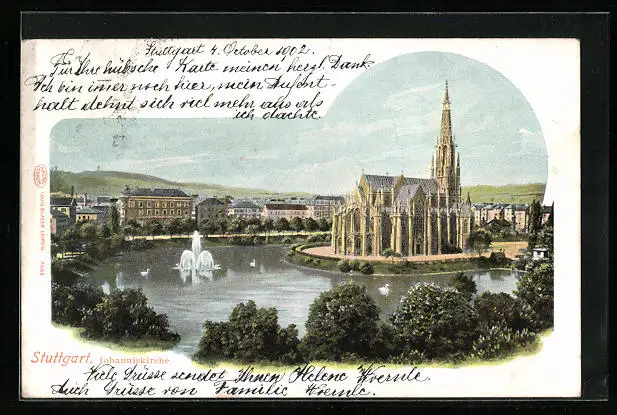 Stuttgart 4. October 1902.
Für Ihre hübsche Karte meinen herzl. Dank.
Ich bin imer noch hier, mein Aufent-
halt dehnt sich viel mehr aus als
ich dachte.
Stuttgart. Johanniskirche
Viele Grüsse sendet Ihnen Helene Woernle.
Auch Grüsse von Familie Woernle.